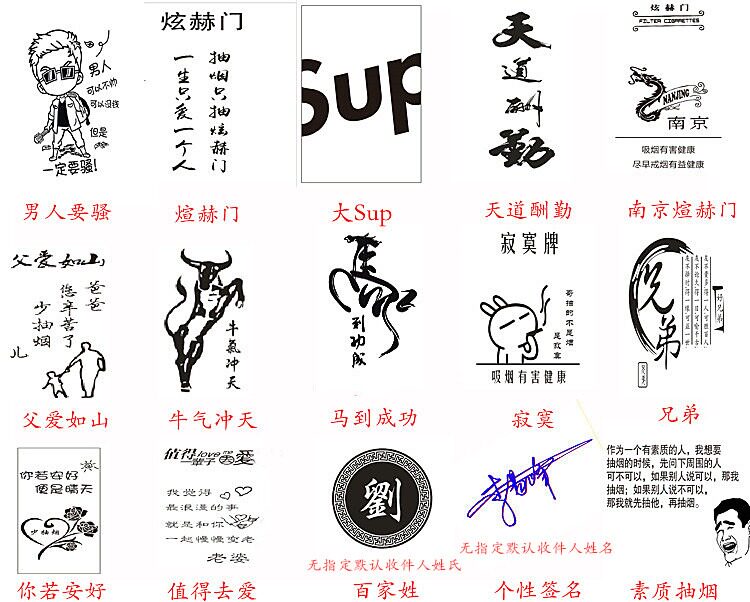 男人
可以不帅
可以没钱
但是
一定要骚!
男人要骚
炫赫门
抽烟只抽炫赫门
一生只爱一个人
煊赫门
Sup
大Sup
天道酬勤
天道酬勤
炫赫门
FILTER CIGARETTES
NANJING
南京
吸烟有害健康
尽早戒烟有益健康
南京煊赫门
父爱如山
爸爸
您辛苦了
少抽烟
儿
父爱如山
牛氣冲天
牛气冲天
馬到功成
马到成功
寂寞牌
哥抽的不是烟
是寂寞
吸烟有害健康
寂寞
兄弟
好兄弟
兄弟
你若安好
便是晴天
少抽烟
你若安好
值得love
一辈子去爱
我觉得
最浪漫的事
就是和你
一起慢慢变老
老婆
值得去爱
劉
无指定默认收件人姓氏
百家姓
无指定默认收件人姓名
个性签名
作为一个有素质的人，我想要
抽烟的时候，先问下周围的人
可不可以，如果别人说可以，那我
抽烟；如果别人说不可以，
那我就先抽他，再抽烟。
素质抽烟